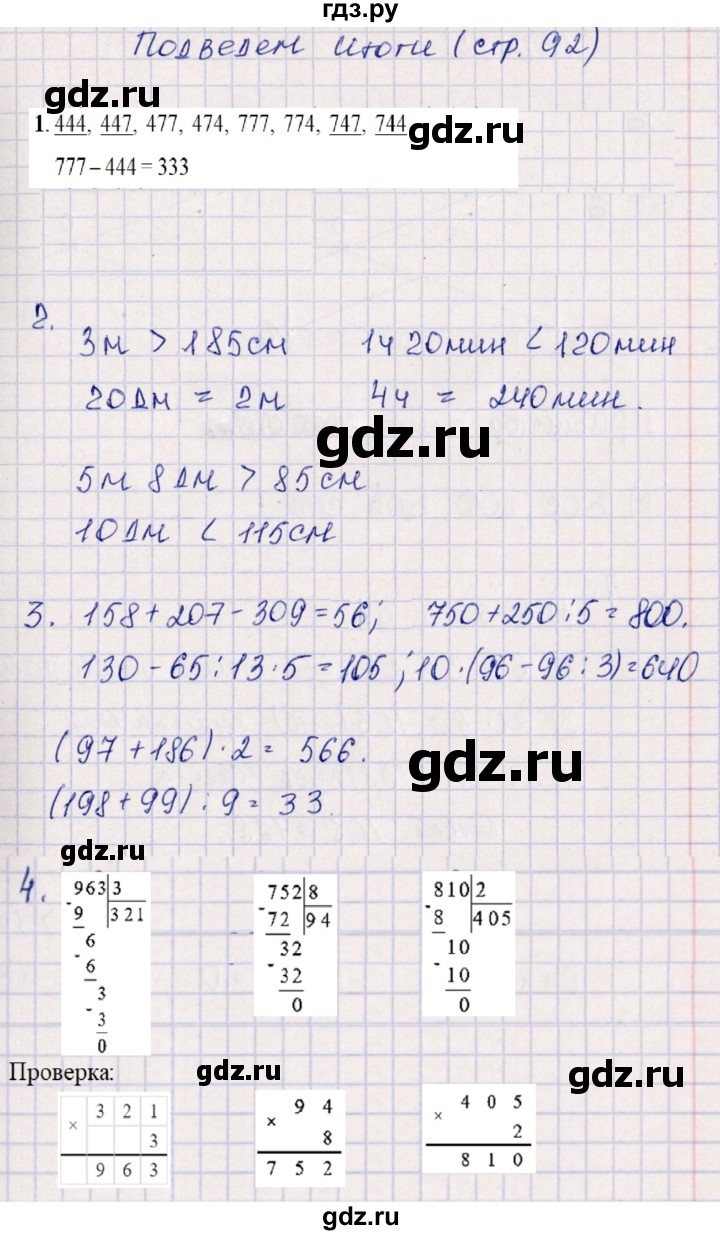 гдз.ру
Подведем итоги (стр. 92)
gdz.ru
1. 444, 447, 477, 474, 777, 774, 747, 744
gdz.ru
777 – 444 = 333
2.
3м > 185см 1ч 20мин < 120мин
20дм = 2м 4ч = 240мин.
gdz.ru
5м 8дм > 85см
10дм < 115см
3. 158 + 207 - 309 = 56; 750 + 250 : 5 = 800.
130 - 65 : 13 · 5 = 105; 10 · (96 - 96 : 3) = 640
(97 + 186) · 2 = 566.
gdz.ru
(198 + 99) : 9 = 33.
gdz.ru gdz.ru
4. 963 3 752 8 810 2
- 9 321 - 72 94 - 8 405
6 32 10
- 6 - 32 - 10
3 0 0
- 3
0
Проверка: gdz.ru gdz.ru
× 321 × 94 × 405
3 8 2
963 752 810
gdz.ru